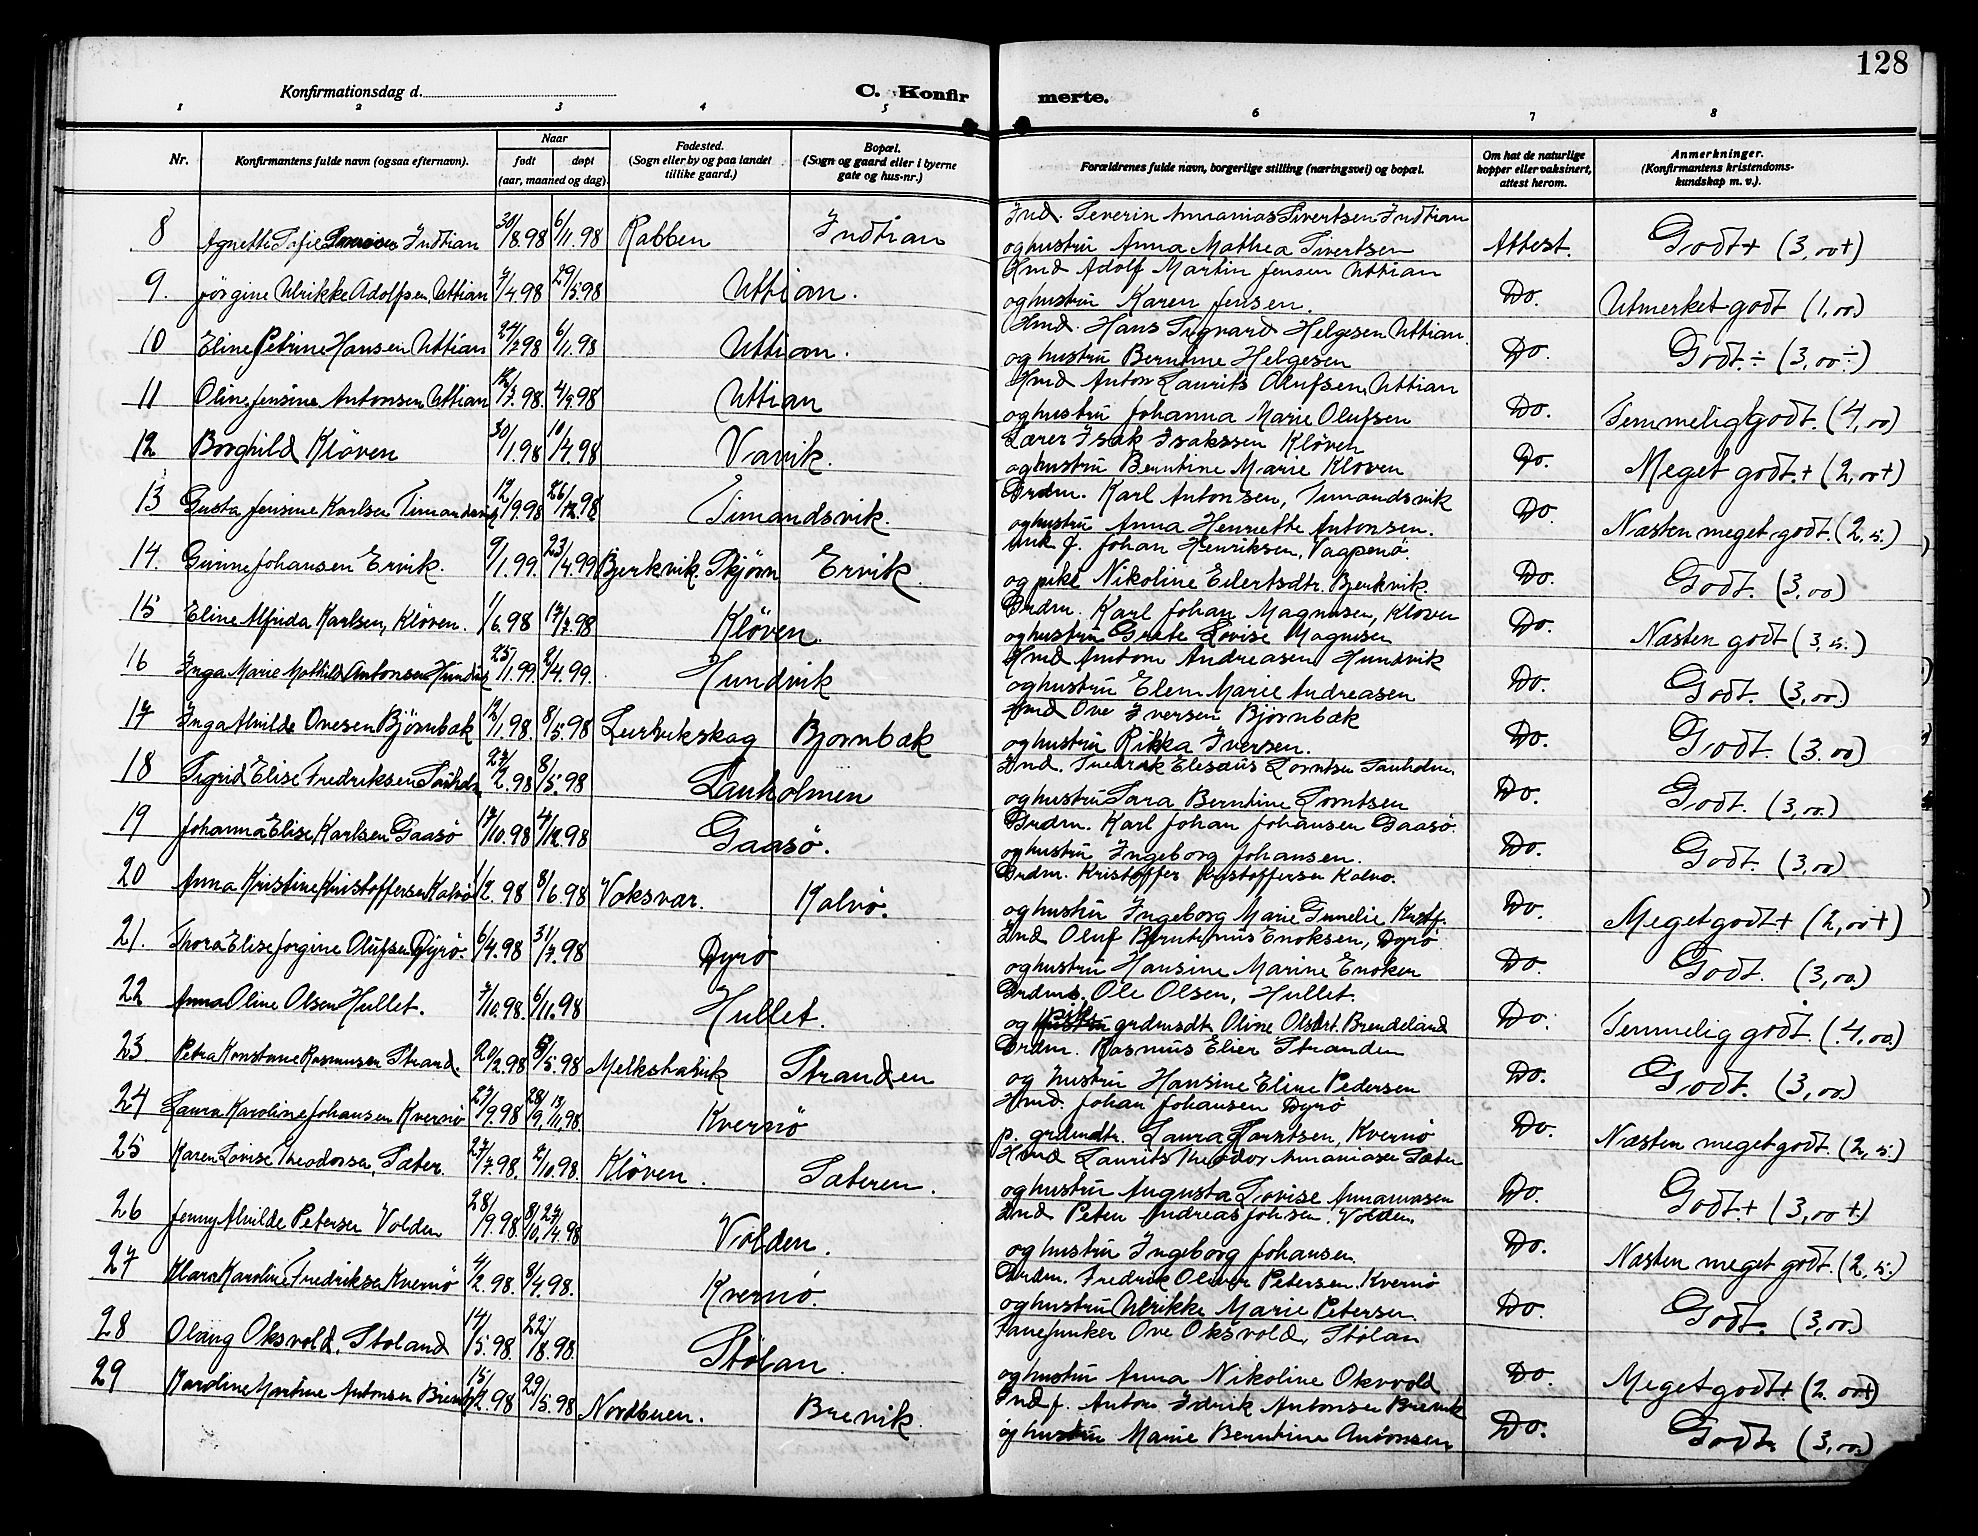 128
Konfirmationsdag d.
C. Konfirmerte.
1 2 3 4 5 6 7 8
Nr. Konfirmantens fulde navn (ogsaa efternavn). Naar født døpt (aar, maaned og dag). Fødested. (Sogn eller by og paa landet tillike gaard.) Bopæl. (Sogn og gaard eller i byerne gate og hus-nr.) Forældrenes fulde navn, borgerlige stilling (næringsvei) og bopæl. Om hat de naturlige kopper eller vaksinert, attest herom. Anmerkninger. (Konfirmantens kristendoms-kundskap m. v.).
Ind. Severin Ananias Sivertsen Indtian
8 Agnethe Sofie Indtian 30/8.98 6/11.98 Rabben Indtian og hustru Anna Mathea Sivertsen Attest. Godt+ (3,00+)
Hmd Adolf Martin Jensen Uttian
9. Jørgine Ulrikke Adolfsen, Uttian 7/4.98 29/5.98 Uttian. og hustru Karen Jensen. Do. Utmerket godt (1,00)
Hmd. Hans Sigvard Helgesen Uttian.
10 Eline Petrine Hansen Uttian 24/7.98 6/11.98 Uttian. og hustru Berntine Helgesen Do. Godt ÷ (3,00÷)
Hmd Anton Laurits Olufsen, Uttian
11 Oline Jensine Antonsen Uttian 12/7.98. 4/9.98 Uttian og hustru Johanna Marie Olufsen Do. Temmelig godt. (4,00)
Lærer Isak Isakssen Kløven
12 Borghild Kløven 30/1.98 10/4.98 Vavik. og hustru Berntine Marie Kløven Do. Meget godt.+ (2,00+)
Grdm. Karl Antonsen, Timandsvik
13 Gusta Jensine Karlsen Timandsvik 12/9.98 26/12.98 Timandsvik. og hustru Anna Henriette Antonsen. Do. Næsten meget godt. (2,5.)
unk f. Johan Henriksen, Vagpenø.
14. Ginine Johansen Ervik. 9/1.99. 23/4.99 Bjerkvik. Skjørn Ervik. og pike Nikoline Eilertsdtr. Bjerkvik. Do. Godt. (3,00)
Grdm. Karl Johan Magnusen, Kløven
15 Eline Alfrida Karlsen, Kløven. 1/6.98 17/7.98 Kløven. og hustru Grete Lovise Magnusen Do. Næsten godt (3,5.)
Hmd Antom Andreasen Hundvik
16 Inga Marie Mathilde Antonsen Hundvik 25/1.99 2/4.99. Hundvik og hustru Elen Marie Andreasen Do. Godt. (3,00.)
Hmd Ove Iversen Bjørnbak
17 Inga Alvilde Ovesen Bjørnbak 12/1.98. 8/5.98 Leirvikskag Bjørnbak og hustru Rikka Iversen. Do. Godt. (3.00)
Ind. Fredrik Elesæus Lorntsen Sauholmen
18 Sigrid Elise Fredriksen Sauholm 27/2.98 8/5.98 Sauholmen og hustru Sara Berntine Lorntsen Do. Godt. (3,00.)
Grdm. Karl Johan Johansen Gaasø.
19 Johanna Elise Karlsen Gaasø 17/10.98 4/12.98 Gaasø. og hustru Ingeborg Johansen. Do. Godt. (3,00)
Grdm. Kristoffer Kristoffersen Kalvø.
20 Anna Kristine Kristoffersen Kalvø 1/2.98 8/6.98 Vaksvar. Kalvø. og hustru Ingeborg Marie Gunelie Kristf. Do. Meget godt+ (2,00+)
Ind Oluf Berntinus Enoksen, Dyrø
21. Thora Elise Jorgine Olufsen Dyrø. 6/4.98 31/7.98 Dyrø og hustru Hansine Marine Enoksen Do. Godt. (3,00.)
Grdms. Ole Olsen, Hullet.
22 Anna Oline Olsen Hullet. 7/10.98. 6/11.98 Hullet. og pike grdmsdtr Oline Olsdtr. Brendeland Do. Temmelig godt. (4,00)
Grdm. Rasmus Elier Stranden
23 Petra Konstane Rasmusen Strand. 20/2.98 8/5.98 Melkstadvik Stranden og hustru Hansine Eline Pedersen Do. Godt. (3,00.)
Hmd. Johan Johansen Dyrø
24 Laura Karoline Johansen Kvernø 27/9.98 28/9, 13/11.98. Kvernø p. grdmdtr. Laura Lorntsen, Kvernø Do. Næsten meget godt. (2,5.)
Hmd Laurits Theodor Ananiasen Sæter
25 Karen Lovise Theodorsen, Sæter. 27/7.98. 2/10.98. Kløven. Sæteren. og hustru Augusta Lovise Annaniasen Do. Godt.+ (3,00+.)
Ind Peter Andreas Johsen. Volden.
26 Jenny Alvilde Petersen Volden 28/9.98. 8/10, 27/4.98 Volden. og hustru Ingeborg Johansen. Do. Næsten meget godt. (2,5.)
Grdm. Fredrik Oliver Petersen. Kvernø
27 Klara Karoline Fredriksen Kvernø 4/2.98. 8/4.98. Kvernø. og hustru Ulrikke Marie Petersen. Do. Godt. (3,00.)
Fanejunker Ove Oksvold, Stølan
28 Olaug Oksvold. Støland 14/5.98. 22/8.98. Stølan. og hustru Anna Nikoline Oksvold Do. Meget godt+ (2.00+)
Ind f. Anton Idrik Antonsen Brevik
29 Karoline Martine Antonsen Brevik 15/2.98 29/5.98 Nordbuen. Brevik. og hustru Marie Berntine Antonsen Do. Godt. (3,00.)